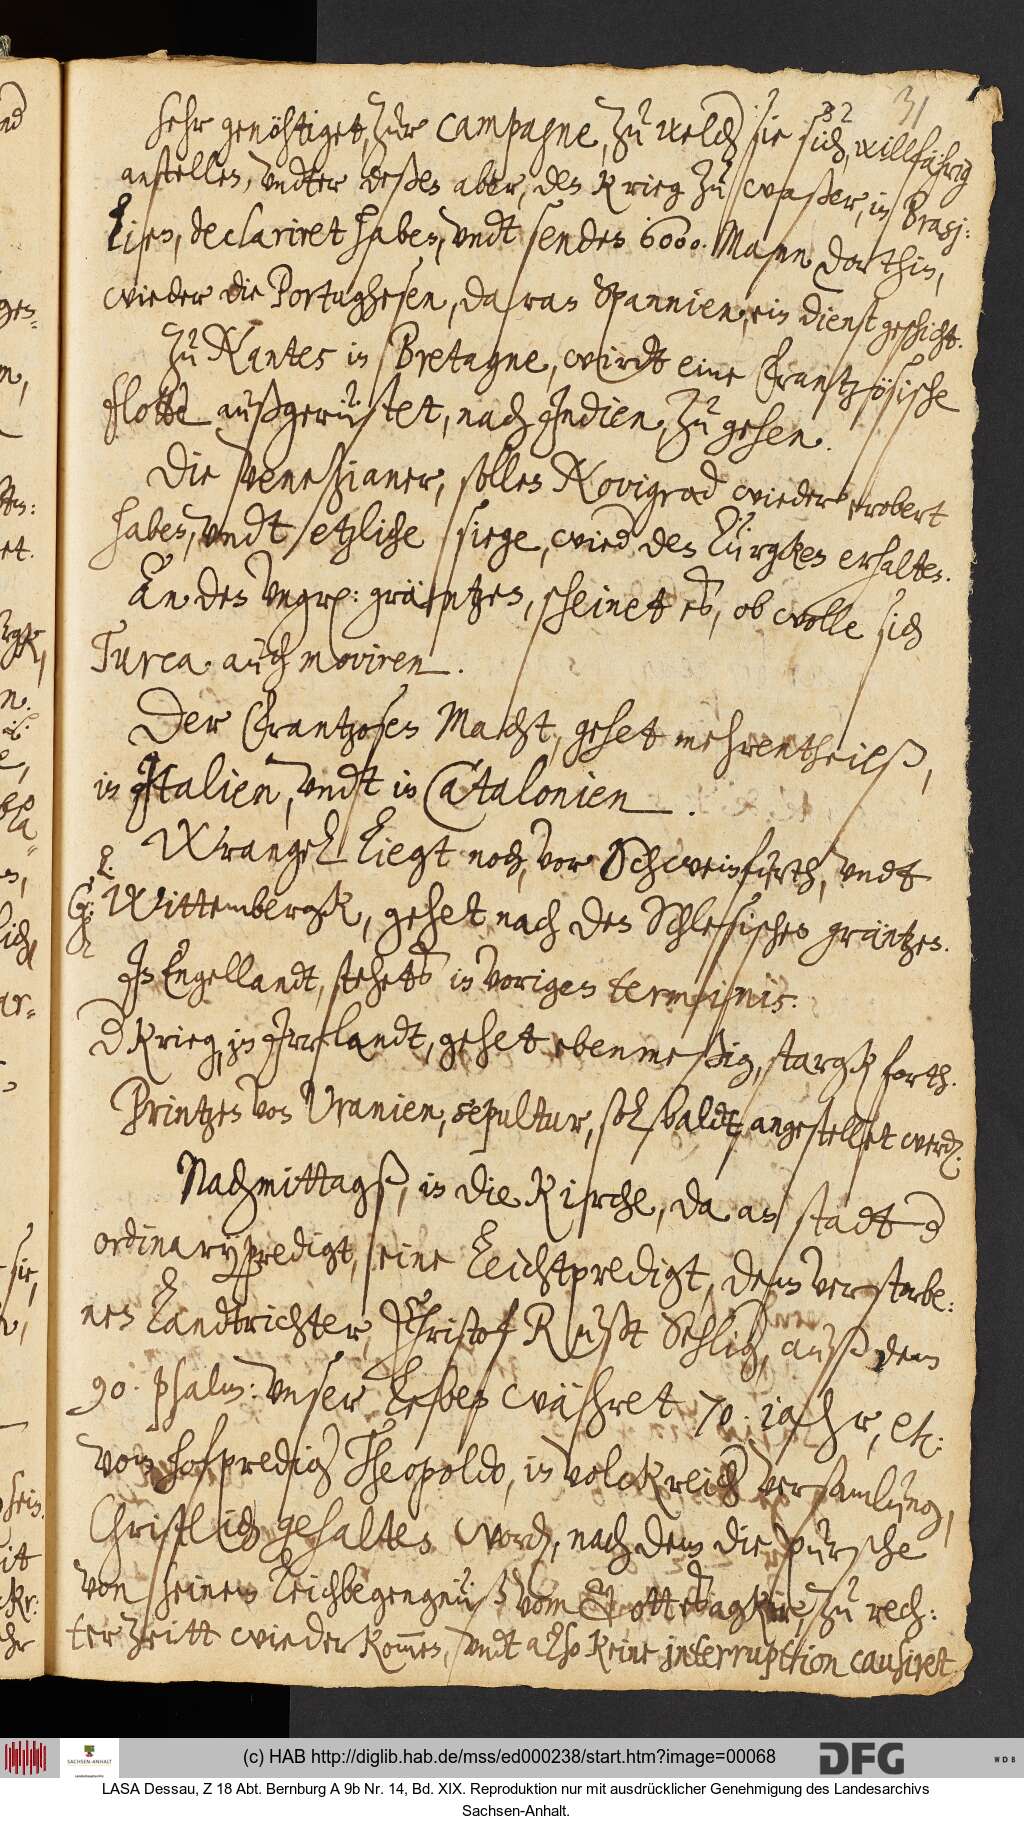 32 31
sehr genöhtiget, zur campagne, zu welch sie sich, willfährig
anstellen, vndter deßen aber, den Krieg zu waßer, in Brasj:
lien, declariret haben, vndt senden 6000. Mann dorthin,
wieder die Portughesen, daran Spannien, ein dienst geschicht.
Zu Nantes in Bretagne, wirdt eine Frantzösische
flotte außgerüstet, nach Jndien, zu gehen.
Die Venetzianer, sollen Novigrad wieder erobert
haben, vndt etzliche siege, wied den Türgken erhalten.
An den Vngr: gräntzen, scheinet es, ob wolle sich
Turca auch moviren.
Der Frantzosen Macht, gehet mehrentheilß,
in Jtalien, vndt in Catalonien.
Wrangel liegt noch, vor Schweinfurth, vndt
G: Wittembergk, gehet nach den Schlesischen gräntzen.
Jn Engellandt, stehets in vorigen terminis.
d Krieg, in Jrrlandt, gehet ebenmeßig, stargk forth.
Printzen von Vranien, sepultur, sol baldt, angestellet werd.
Nachmittagß, in die Kirche, da an stadt d
ordinarij predigt, eine Leichtpredigt, dem verstorbe:
nen Landtrichter, Christof Rußt Sehlig, auß dem
90. psalm: Vnser Leben währet 70. iahr, etc:
vom hofpredig Theopoldo, in volckreich versamlung,
Christlich gehalten word, nach dem die pursche
von seinem Leichbegengnuß vom Gottesagker, zu rech:
ter zeitt wieder kommen, vndt also keine interruption causiret
(c) HAB http://diglib.hab.de/mss/ed000238/start.htm?image=00068
SACHSEN-ANHALT
DFG
WDB
LASA Dessau, Z 18 Abt. Bernburg A 9b Nr. 14, Bd. XIX. Reproduktion nur mit ausdrücklicher Genehmigung des Landesarchivs
Sachsen-Anhalt.